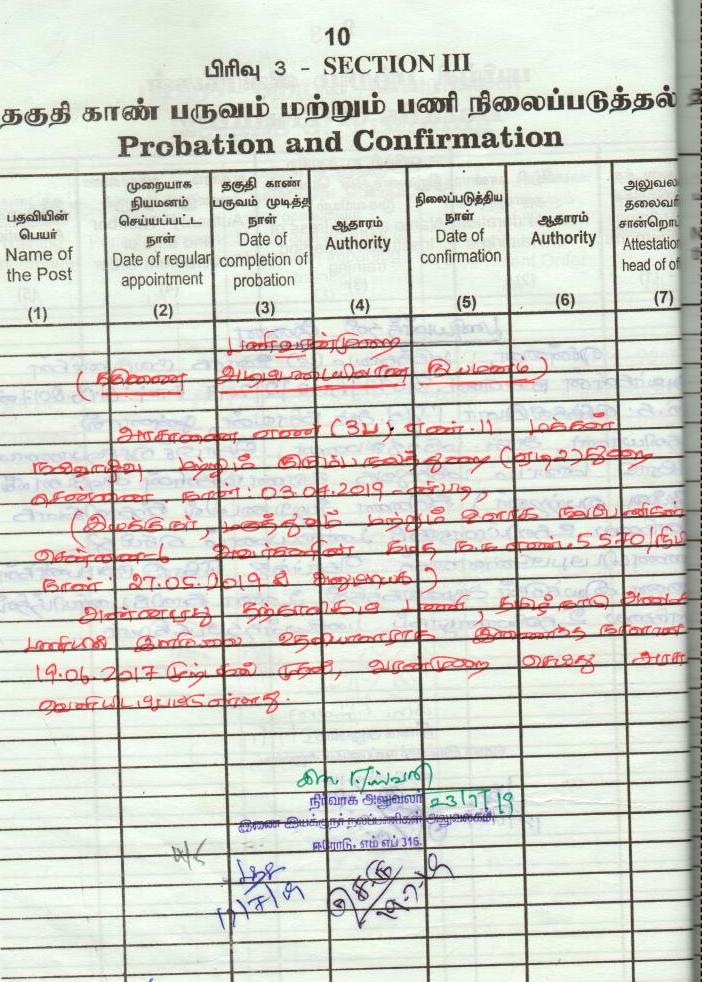 10
பிரிவு 3 - SECTION III
தகுதி காண் பருவம் மற்றும் பணி நிலைப்படுத்தல்
Probation and Confirmation
பதவியின் பெயர் Name of the Post (1)
முறையாக நியமனம் செய்யப்பட்ட நாள் Date of regular appointment (2)
தகுதி காண் பருவம் முடித்த நாள் Date of completion of probation (3)
ஆதாரம் Authority (4)
நிலைப்படுத்திய நாள் Date of confirmation (5)
ஆதாரம் Authority (6)
அலுவல தலைவர் சான்றொப் Attestation head of of (7)
பணிவரன்முறை
(கருணை அடிப்படையிலான நியமனம்)
அரசாணை எண் (3ப) எண்.11 மக்கள்
நல்வாழ்வு மற்றும் குடும்பநலத்துறை துறை
சென்னை நாள்: 03.04.2019 -ன்படி,
(இயக்குநர், மருத்துவம் மற்றும் ஊரக நலப்பணிகள்
சென்னை-6 அவர்களின் கடித ந.க.எண். 5570/
நாள்: 27.05.2019
அன்னாரது தற்காலிக பணி, தமிழ்நாடு
பணியில் இளநிலை உதவியாளராக இணைந்த நாளான
19.06.2017 முற்பகல் முதல், வரன்முறை செய்து அரசா
வெளியிடப்பட்டுள்ளது.
நிர்வாக அலுவலர் 23/7/19
இணை இயக்குநர் நலப்பணிகள் அலுவலகம்
ஈரோடு. எம் எப் 316.